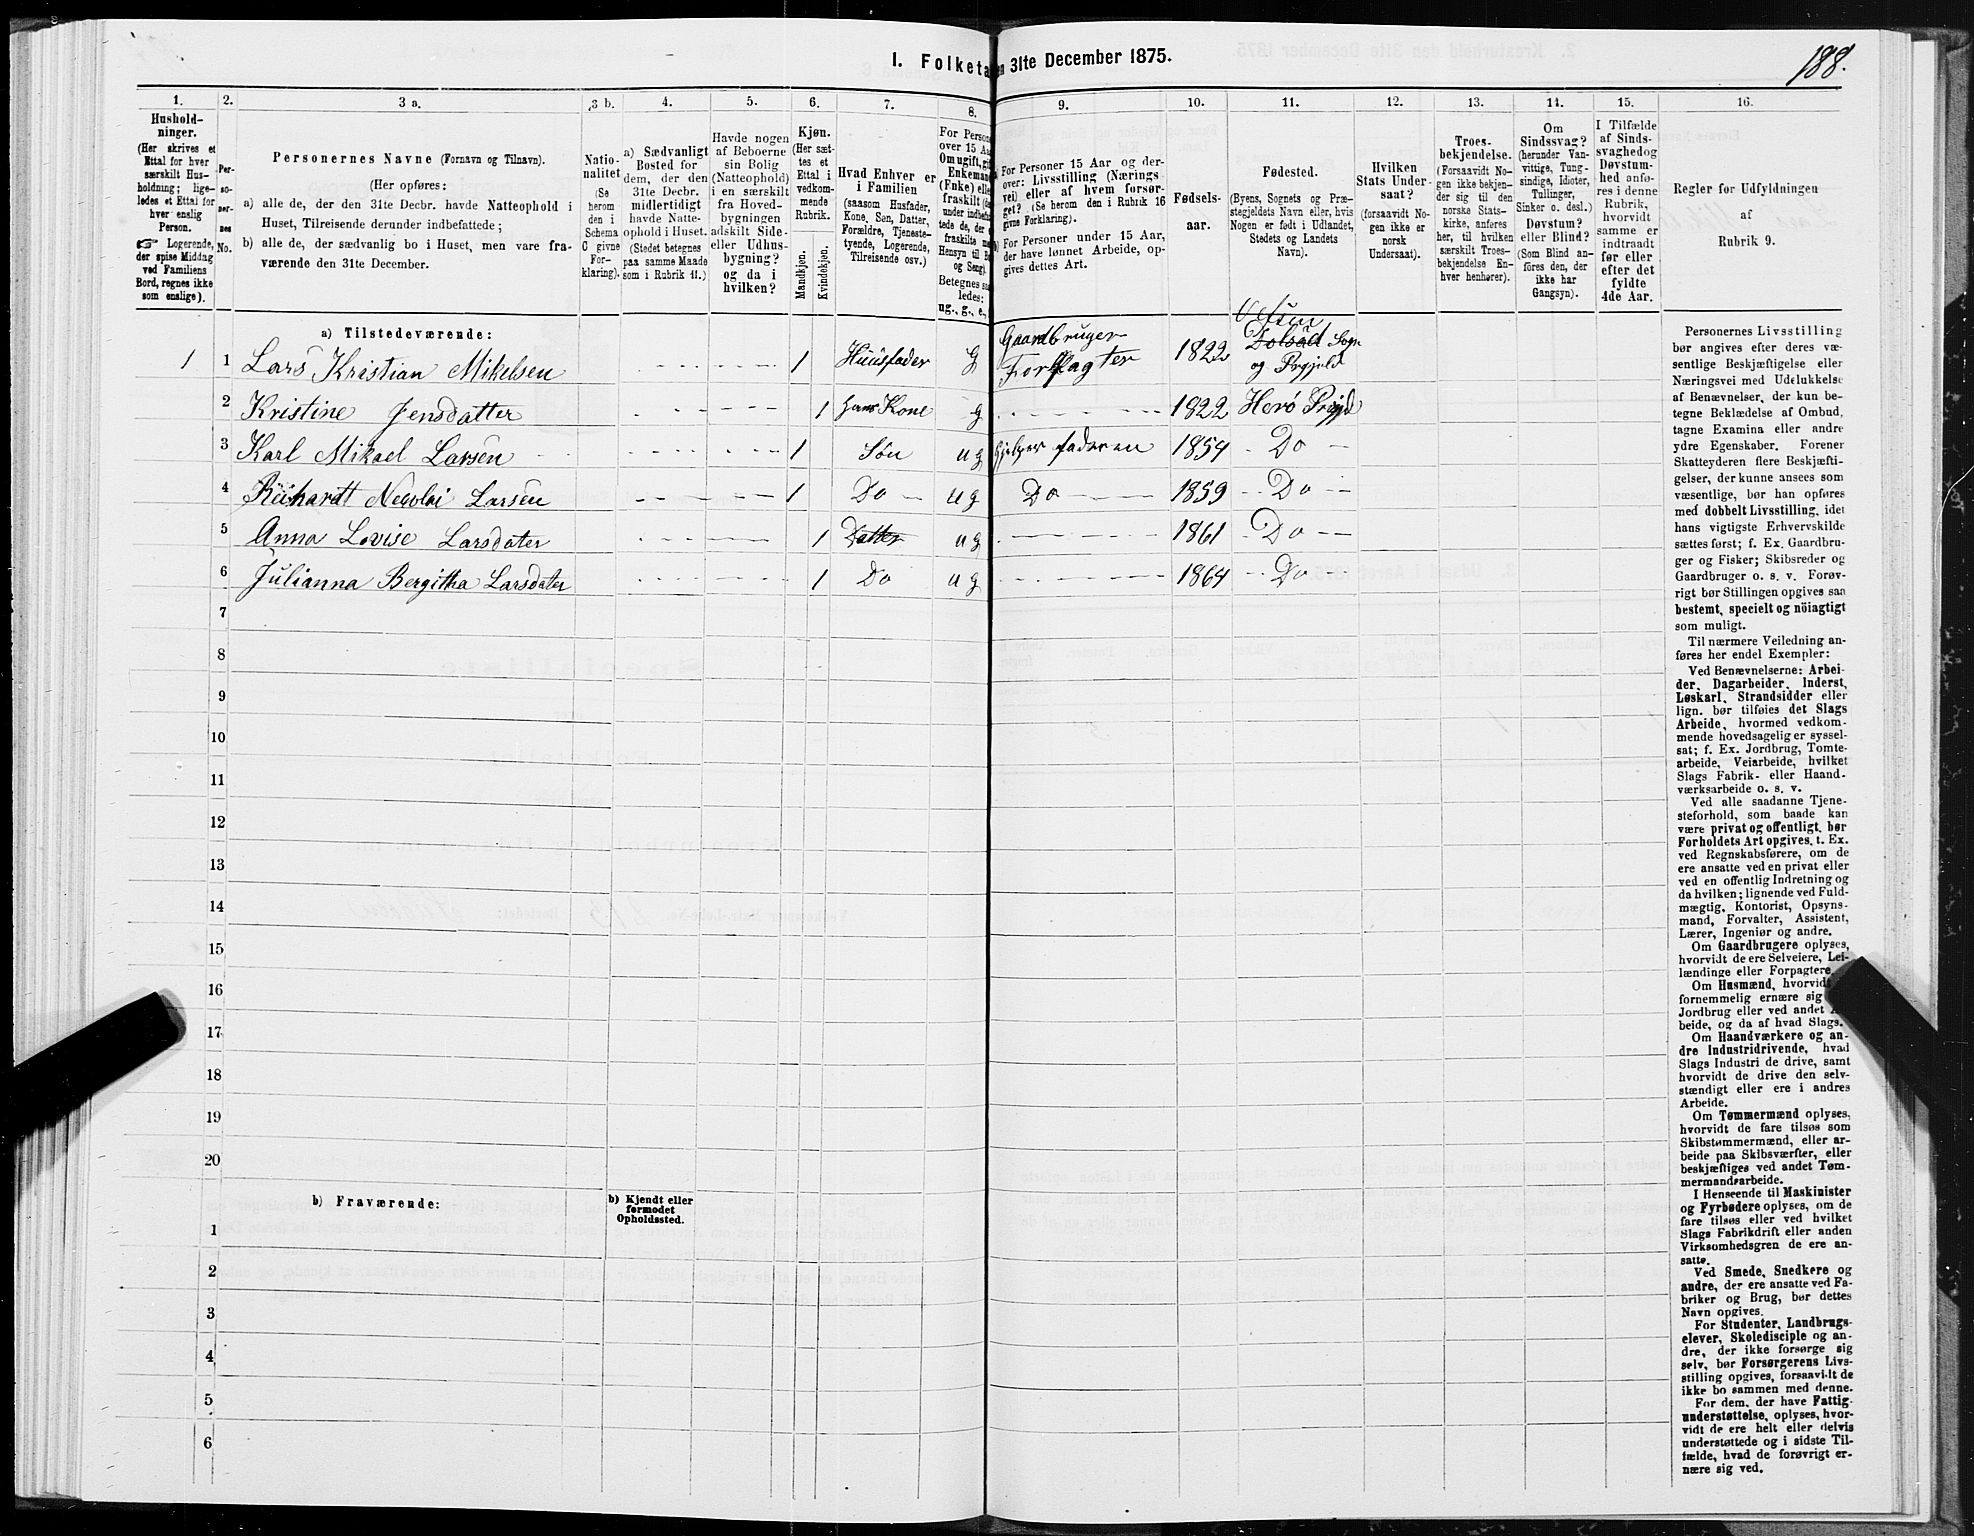 188.
I. Folketa
n 31te December 1875.
1.
2.
3 a.
3 b.
4.
5.
6.
7.
8.
9.
10.
11.
12.
13.
14.
15.
16.
Hushold-
ninger.
(Her skrives et
Ettal for hver
særskilt Hus-
holdning; lige-
ledes et Ettal for
hver enslig
Person.
☞ Logerende,
der spise Middag
ved Familiens
Bord, regnes ikke
som enslige).
Per-
so-
ner-
nes
No.
Personernes Navne (Fornavn og Tilnavn).
(Her opføres:
a) alle de, der den 31te Decbr. havde Natteophold i
Huset, Tilreisende derunder indbefattede;
b) alle de, der sædvanlig bo i Huset, men vare fra-
værende den 31te December.
Natio-
nalitet
(Se
herom
den i
Schema
C givne
For-
klaring).
a) Sædvanligt
Bosted for
dem, der den
31te Decbr.
midlertidigt
havde Natte-
ophold i Huset.
(Stedet betegnes
paa samme Maade
som i Rubrik 11.)
Havde nogen
af Beboerne
sin Bolig
(Natteophold)
i en særskilt
fra Hoved-
bygningen
adskilt Side-
eller Udhus-
bygning?
og da i
hvilken?
Kjøn.
(Her sæt-
tes et
Ettal i
vedkom-
mende
Rubrik.
Mandkjøn.
Kvindekjøn.
Hvad Enhver er
i Familien
(saasom Husfader,
Kone, Søn, Datter,
Forældre, Tjeneste-
tyende, Logerende,
Tilreisende osv.)
For Person
over 15 Aar
Om ugift, gift
Enkemand
(Enke) eller
fraskilt
under indbefat-
tede de, der
fraskilte
Hensyn til B
og Seng).
Betegnes saa
ledes:
ug., g., e.,
For Personer 15 Aar og der-
over: Livsstilling (Nærings
vei) eller af hvem forsør-
get? (Se herom den i Rubrik 16
givne Forklaring).
For Personer under 15 Aar,
der have lønnet Arbeide, op-
gives dettes Art.
Fødsels-
aar.
Fødested.
(Byens, Sognets og Præ-
stegjeldets Navn eller, hvis
Nogen er født i Udlandet,
Stedets og Landets
Navn).
Hvilken
Stats Under-
saat?
(forsaavidt No-
gen ikke er
norsk
Undersaat).
Troes-
bekjendelse.
(Forsaavidt No-
gen ikke bekjen-
der sig til den
norske Stats-
kirke, anføres
her, til hvilken
særskilt Troes-
bekjendelse En-
hver henhører).
Om
Sindssvag?
(herunder Van-
vittige, Tung-
sindige, Idioter,
Tullinger,
Sinker o. desl.)
Døvstum?
eller Blind?
(Som Blind an-
føres den, der
ikke har
Gangsyn).
I Tilfælde
af Sinds-
svaghed og
Døvstum-
hed anfø-
res i denne
Rubrik,
hvorvidt
samme er
indtraadt
før eller
efter det
fyldte
4de Aar.
Regler for Udfyldningen
af
Rubrik 9.
a) Tilstedeværende:
1 1 Lars Kristian Mikelsen 1 Huusfader G Gaardbruger Forpagter 1822 Sogn og Prgjeld
2 Kristine Jensdatter 1 Hans Kone g 1822 Herø Prgjd
3 Karl Mikael Larsen 1 Søn ug hjelper faderen 1854 Do
4 Rikhardt Nicolai Larsen 1 Do ug Do 1859 Do
5 Anna Lovise Larsdater 1 Datter ug 1861 Do
6 Julianna Bergitha Larsdater 1 Do ug 1864 Do
7
8
9
10
11
12
13
14
15
16
17
18
19
20
b) Fraværende:
b) Kjendt eller
formodet
Opholdssted.
1
2
3
4
5
6
Personernes Livsstilling
bør angives efter deres væ-
sentlige Beskjæftigelse eller
Næringsvei med Udelukkelse
af Benævnelser, der kun be-
tegne Beklædelse af Ombud,
tagne Examina eller andre
ydre Egenskaber. Forener
Skatteyderen flere Beskjæfti-
gelser, der kunne ansees som
væsentlige, bør han opføres
med dobbelt Livsstilling, idet
hans vigtigste Erhvervskilde
sættes først; f. Ex. Gaardbru-
ger og Fisker; Skibsreder og
Gaardbruger o. s. v. Forøv-
rigt bør Stillingen opgives saa
bestemt, specielt og nöiagtigt
som muligt.
Til nærmere Veiledning an-
føres her endel Exempler:
Ved Benævnelserne: Arbei-
der, Dagarbeider, Inderst,
Løskarl, Strandsidder eller
lign. bør tilføies det Slags
Arbeide, hvormed vedkom-
mende hovedsagelig er syssel-
sat; f. Ex. Jordbrug, Tomte-
arbeide, Veiarbeide, hvilket
Slags Fabrik- eller Haand-
værksarbeide o. s. v.
Ved alle saadanne Tjene-
steforhold, som baade kan
være privat og offentligt, bør
Forholdets Art opgives, t. Ex.
ved Regnskabsførere, om de
ere ansatte ved en privat eller
ved en offentlig Indretning og
da hvilken; lignende ved Fuld-
mægtig, Kontorist, Opsyns-
mand, Forvalter, Assistent,
Lærer, Ingeniør og andre.
Om Gaardbrugere oplyses,
hvorvidt de ere Selveiere, Lei-
lændinge eller Forpagtere.
Om Husmænd, hvorvidt
fornemmelig ernære sig
Jordbrug eller ved andet
beide, og da af hvad Slags.
Om Haandværkere og an-
dre Industridrivende, hvad
Slags Industri de drive, samt
hvorvidt de drive den selv-
stændigt eller ere i andres
Arbeide.
Om Tømmermænd oplyses,
hvorvidt de fare tilsøs som
Skibstømmermænd, eller ar-
beide paa Skibsværfter, eller
beskjæftiges ved andet Tøm-
mermandsarbeide.
I Henseende til Maskinister
og Fyrbødere oplyses, om de
fare tilsøs eller ved hvilket
Slags Fabrikdrift eller anden
Virksomhedsgren de ere an-
satte.
Ved Smede, Snedkere og
andre, der ere ansatte ved Fa-
briker og Brug, bør dettes
Navn opgives.
For Studenter, Landbrugs-
elever, Skoledisciple og an-
dre, der ikke forsørge sig
selv, bør Forsørgerens Livs-
stilling opgives, forsaavidt de
ikke bo sammen med denne.
For dem, der have Fattig-
understøttelse, oplyses, hvor-
vidt de ere helt eller delvis
understøttede og i sidste Til-
fælde, hvad de forøvrigt er-
nære sig ved.